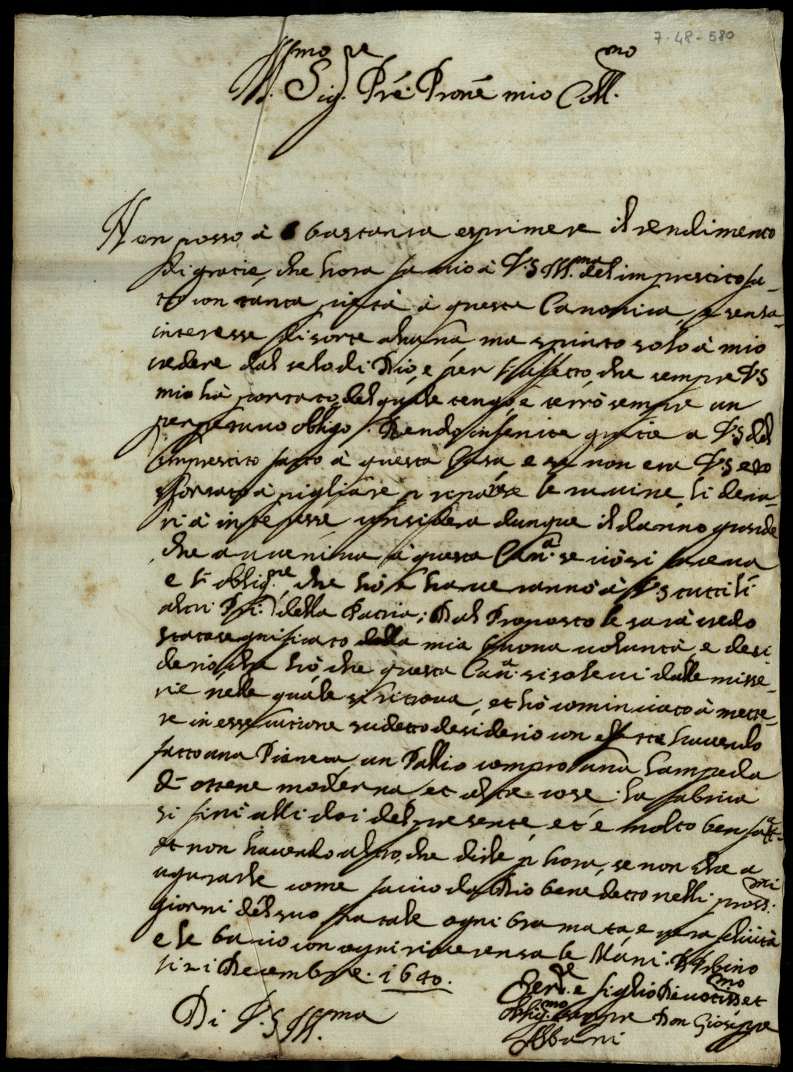 7-48-580
Ill.mo Sig.re Pré. Prone mio Coll.mo
Non posso à bastanza esprimere il rendimento
di gracie, che hora faccio à V.S. Ill.ma del imprestito fa-
tto con tanta pietà à questa Canonica, e senza
interesse di sorte alcuna, ma spinto solo à mio
credere dal zelo di Dio, e per l'affetto, che sempre V.S.
mio hà portato, del quale tengo, e terrò sempre un
perpetuo obligo. Rendo infenite gracie a V.S. del
imprestito fatto à questa Casa, e se non era V.S. ero
sforzato à pigliare p reparare le ruuine, li dena-
ri à interesse, consideri dunque il danno grande
che aueniua à questa Can.a se cosi faceua
e l'oblig.ne che hò, e haueranno à V.S. tutti li
altri Pri. della Patria; Dal Proposto le sarà credo
stato significato della mia buona voluntà, e desi
derio che hò che questa Can.a si soleui dalle misse-
rie nelle quale si ritroua, et hò cominciato à mette-
re in essecutione sudetto desiderio con hauendo
fatto una Pianeta, un Pallio compro una Lampeda
d'ottone moderna, et altre cose. La fabrica
si finì alli doi del presente, et è molto ben fatta
et non hauendo altro, che dirle p hora, se non che a
ugurarle come faccio da Dio benedetto nelli pross.mi
giorni del suo Natale ogni bramata e vera felicità
e le bacio con ogni riuerenza le Mani. D'Urbino
li 21 Decembre. 1640.
Di V.S. Ill.ma
Ser.re e figlio Deuotiss.mo et
Oblig.mo sempre Don Gioseppe
Albani